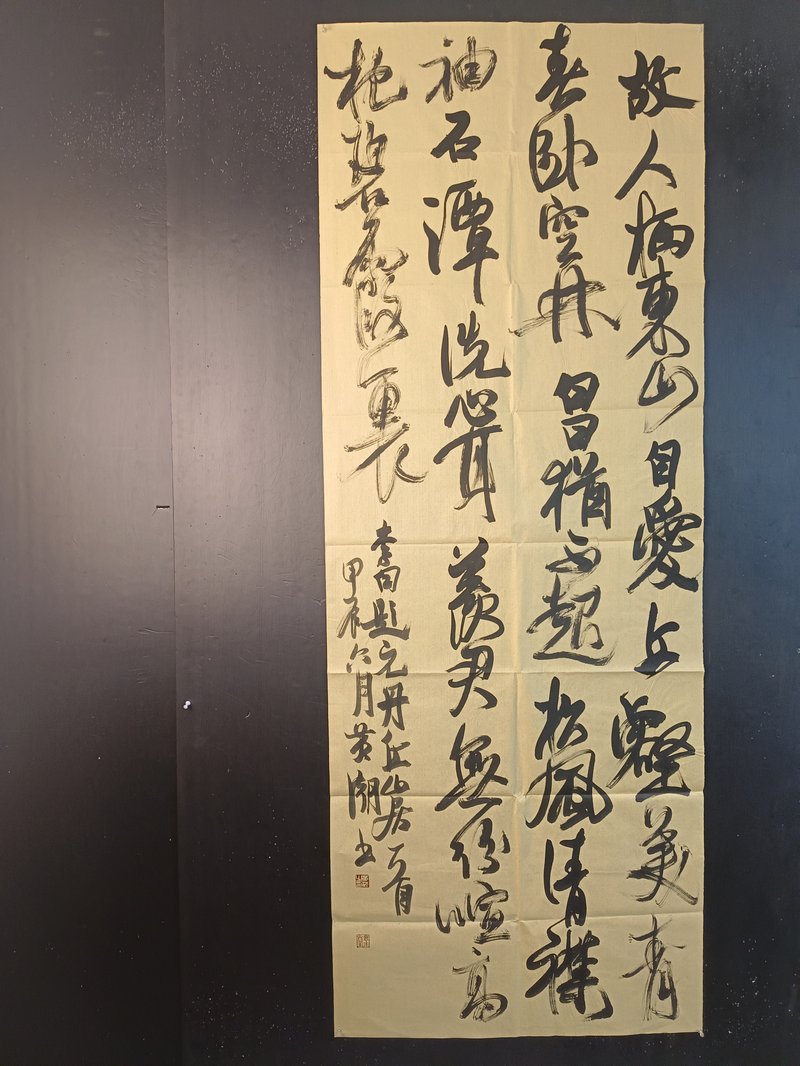 故人栖東山自愛丘壑美青
春卧空林白日猶不起松風清襟
袖石潭洗心耳羨君無紛喧高
枕碧霞裏
李白題元丹丘山居一首
甲辰六月黄潮书